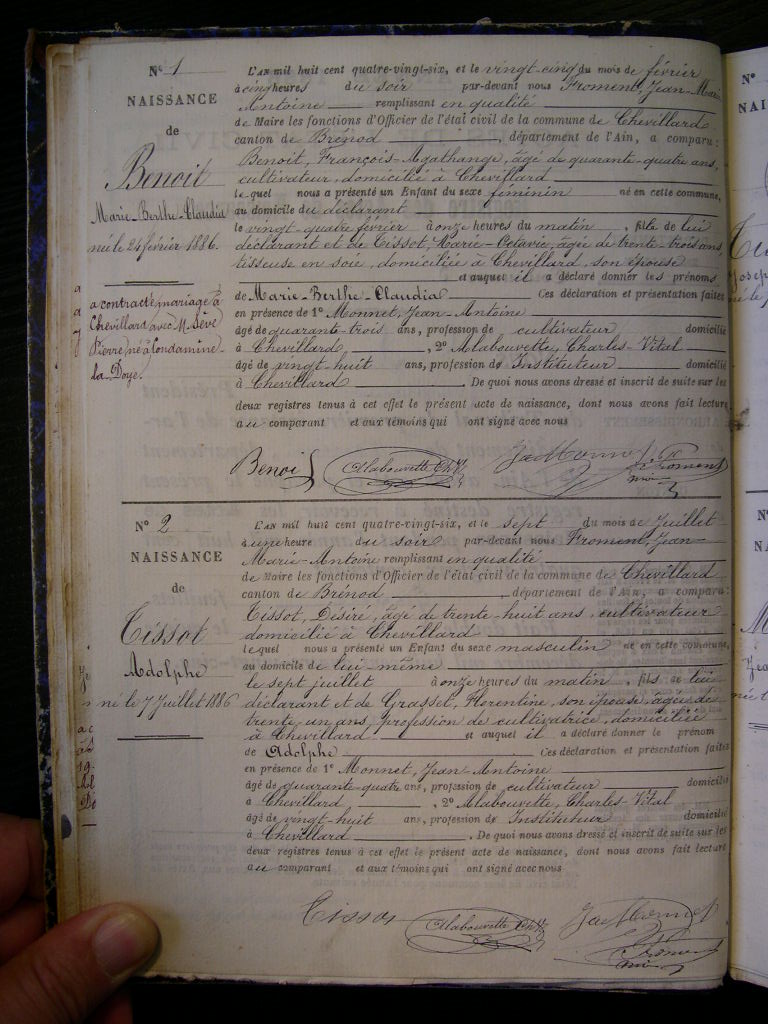 N° 1
NAISSANCE
de
Benoit
Marie-Berthe-Claudia
née le 24 février 1886.
a contracté mariage à
Chevillard avec M. Sève
Pierre né à Condamine
la Doye.
L'AN mil huit cent quatre-vingt-six, et le vingt-cinq du mois de février
à cinq heures du soir par-devant nous Froment, Jean-Marie
Antoine remplissant en qualité
de Maire les fonctions d'Officier de l'état civil de la commune de Chevillard
canton de Brénod, département de l'Ain, a comparu:
Benoit, François-Agathange, âgé de quarante-quatre ans,
cultivateur, domicilié à Chevillard
lequel nous a présenté un Enfant du sexe féminin né en cette commune,
au domicile du déclarant
le vingt-quatre février à onze heures du matin, fille de lui
déclarant et de Tissot, Marie-Octavie, âgée de trente-trois ans,
tisseuse en soie, domiciliée à Chevillard, son épouse
et auquel il a déclaré donner les prénoms
de Marie-Berthe-Claudia Ces déclaration et présentation faites
en présence de 1° Monnet, Jean-Antoine
âgé de quarante-trois ans, profession de cultivateur domicilié
à Chevillard, 2° Alabouvette, Charles-Vital
âgé de vingt-huit ans, profession d' Instituteur domicilié
à Chevillard. De quoi nous avons dressé et inscrit de suite sur les
deux registres tenus à cet effet le présent acte de naissance, dont nous avons fait lecture
au comparant et aux témoins qui ont signé avec nous
Benoit Alabouvette Ch. V. Jea Monnet Froment
N° 2
NAISSANCE
de
Tissot
Adolphe
né le 7 Juillet 1886
L'AN mil huit cent quatre-vingt-six, et le sept du mois de Juillet
à une heure du soir par-devant nous Froment, Jean-
Marie-Antoine remplissant en qualité
de Maire les fonctions d'Officier de l'état civil de la commune de Chevillard
canton de Brénod, département de l'Ain, a comparu:
Tissot, Désiré, âgé de trente-huit ans, cultivateur
domicilié à Chevillard
lequel nous a présenté un Enfant du sexe masculin né en cette commune,
au domicile de lui-même
le sept juillet à onze heures du matin, fils de lui
déclarant et de Grasset, Florentine, son épouse, âgée de
trente un ans, profession de cultivatrice, domiciliée
à Chevillard et auquel il a déclaré donner le prénom
de Adolphe Ces déclaration et présentation faites
en présence de 1° Monnet, Jean-Antoine
âgé de quarante-quatre ans, profession de cultivateur domicilié
à Chevillard, 2° Alabouvette, Charles-Vital
âgé de vingt-huit ans, profession d' Instituteur domicilié
à Chevillard. De quoi nous avons dressé et inscrit de suite sur les
deux registres tenus à cet effet le présent acte de naissance, dont nous avons fait lecture
au comparant et aux témoins qui ont signé avec nous
Tissot Alabouvette Ch. V. Jea Monnet
Froment